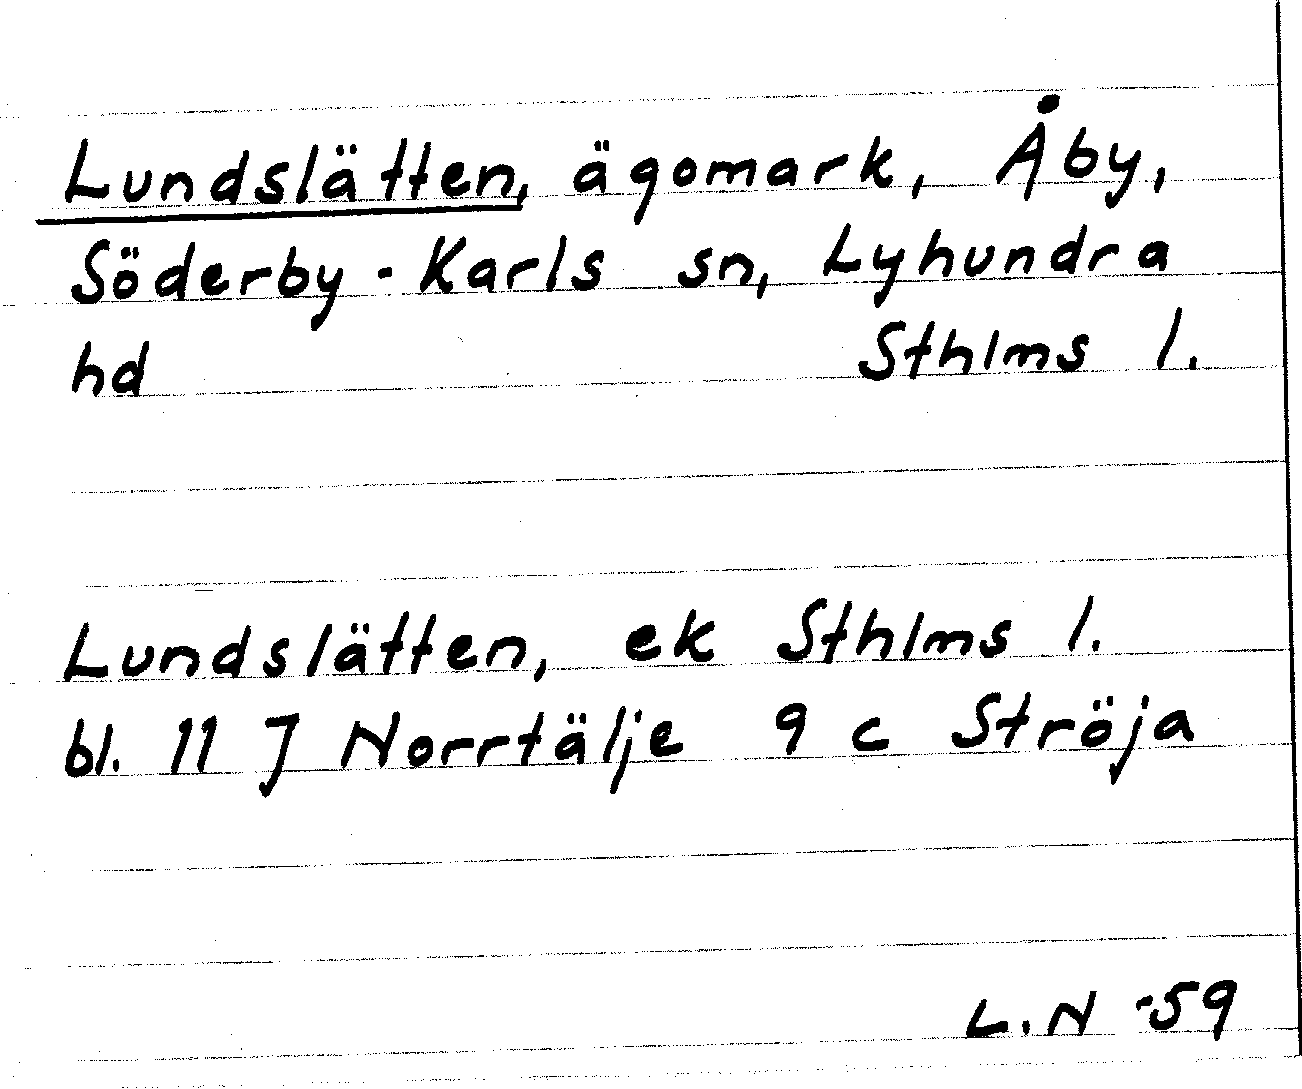 Lundslätten, ägomark, Åby,
Söderby-Karls sn, Lyhundra
hd Sthlms l.
Lundslätten, ek Sthlms l.
bl. 11 J Norrtälje 9 c Ströja
L.N -59